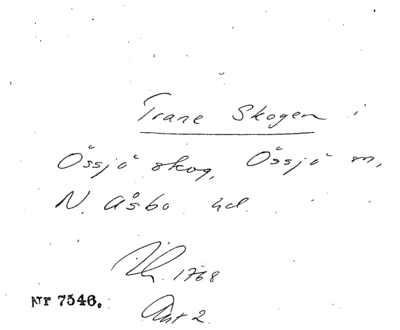 Trane Skogen i
Össjö skog, Össjö m,
N. Åsbo hd.
1768
ATr 7546.
Akt 2.